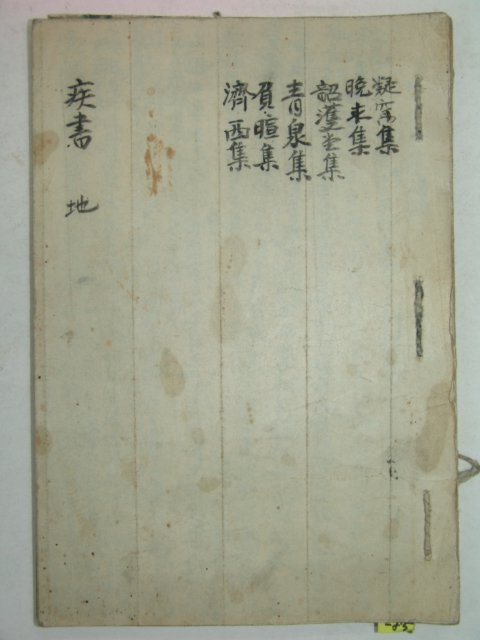 凝窩集
晩末集
韶濩堂集
青泉集
負暄集
濟西集
疾書 地